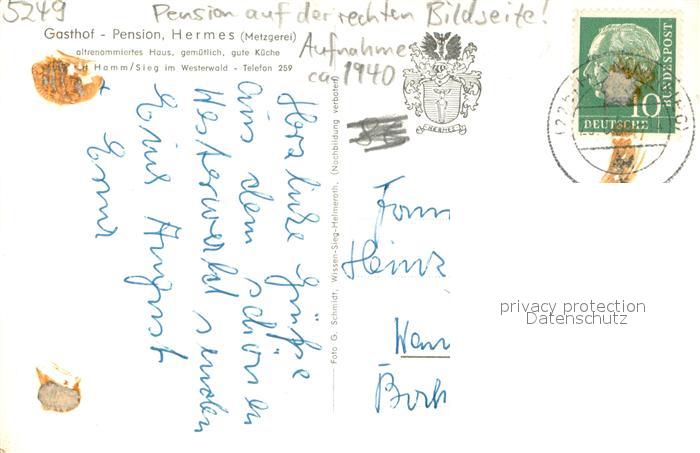 5249
Pension auf der rechten Bildseite!
Aufnahme
ca 1940
Gasthof - Pension, Hermes (Metzgerei)
altrenommiertes Haus, gemütlich, gute Küche
Hamm/Sieg im Westerwald - Telefon 259
HERMES
10
DEUTSCHE
BUNDESPOST
Herzliche Grüße
aus dem schönen
Westerwald senden
Foto G. Schmidt, Wissen-Sieg-Helmeroth, (Nachbildung verboten)
Heinz
privacy protection
Datenschutz